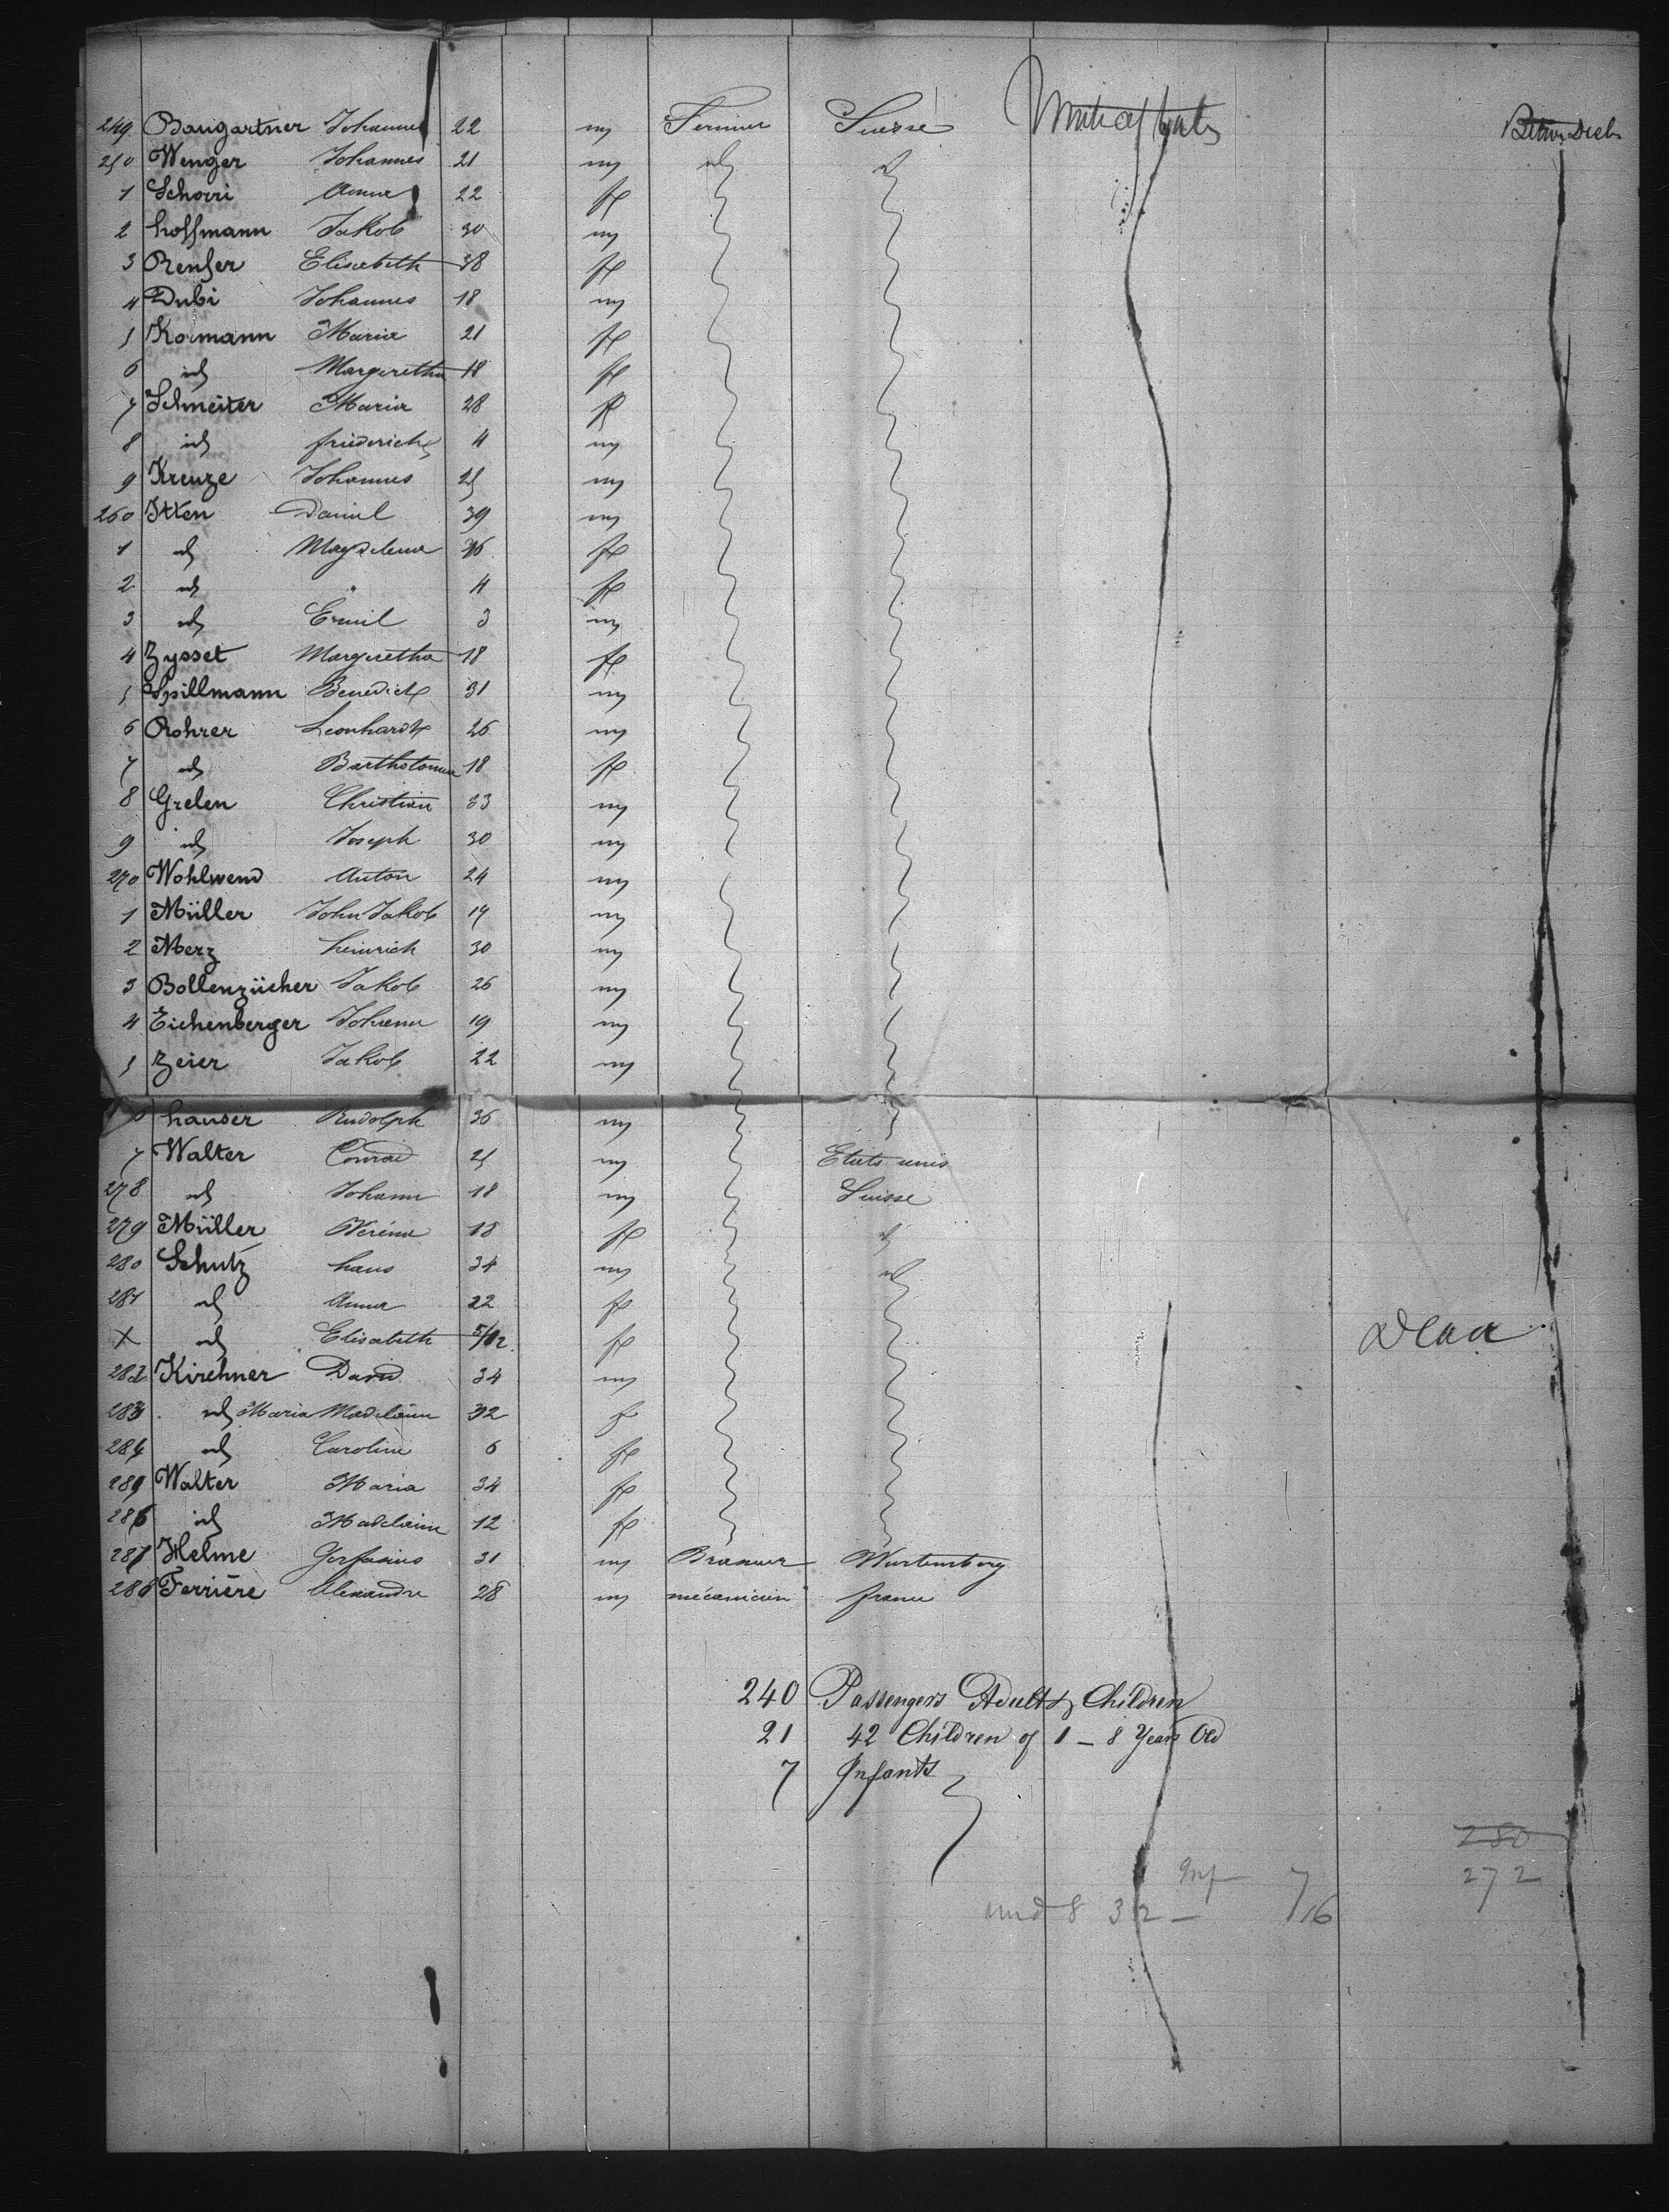 249 Baugartner Johannes 22 m Fermier Suisse United States Betwn Decks
250 Wenger Johannes 21 m id id
1 Schorri Anna 22 f
2 hoffmann Jakob 30 m
3 Renfer Elisabeth 38 f
4 Dubi Johannes 18 m
5 Kormann Maria 21 f
6 id Margeretha 18 f
7 Schmeiter Maria 28 f
8 id friederich 4 m
9 Kreuze Johannes 25 m
260 Itten Daniel 39 m
1 id Magdelena 36 f
2 id " 4 f
3 id Emil 3 m
4 Zysset Margeretha 18 f
5 Spillmann Benedict 31 m
6 Rohrer Leonhardt 26 m
7 id Bartholomea 18 f
8 Grelen Christian 33 m
9 id Joseph 30 m
270 Wohlwend Anton 24 m
1 Müller John Jakob 19 m
2 Merz heinrich 30 m
3 Bollenzücher Jakob 26 m
4 Eichenberger Johann 19 m
5 Zeier Jakob 22 m
6 hauser Rudolph 36 m
7 Walter Conrad 25 m Etats unis
278 id Johann 18 m Suisse
279 Müller Veréna 18 f id
280 Schutz hans 34 m id
281 id Anna 22 f
X id Elisabeth 5/12 f Dead
282 Kirchner David 34 m
283 id Maria Madelaine 32 f
284 id Caroline 6 f
285 Walter Maria 34 f
286 id Madelaine 12 f
287 Helme 31 m Wurtemberg
288 Ferriére Alexandre 28 m mécanicien france
240 Passengers Adults & Children
21 42 Children of 1 – 8 Years Old
7 Infants
280
272
Inf 7
und 8 32 – 16